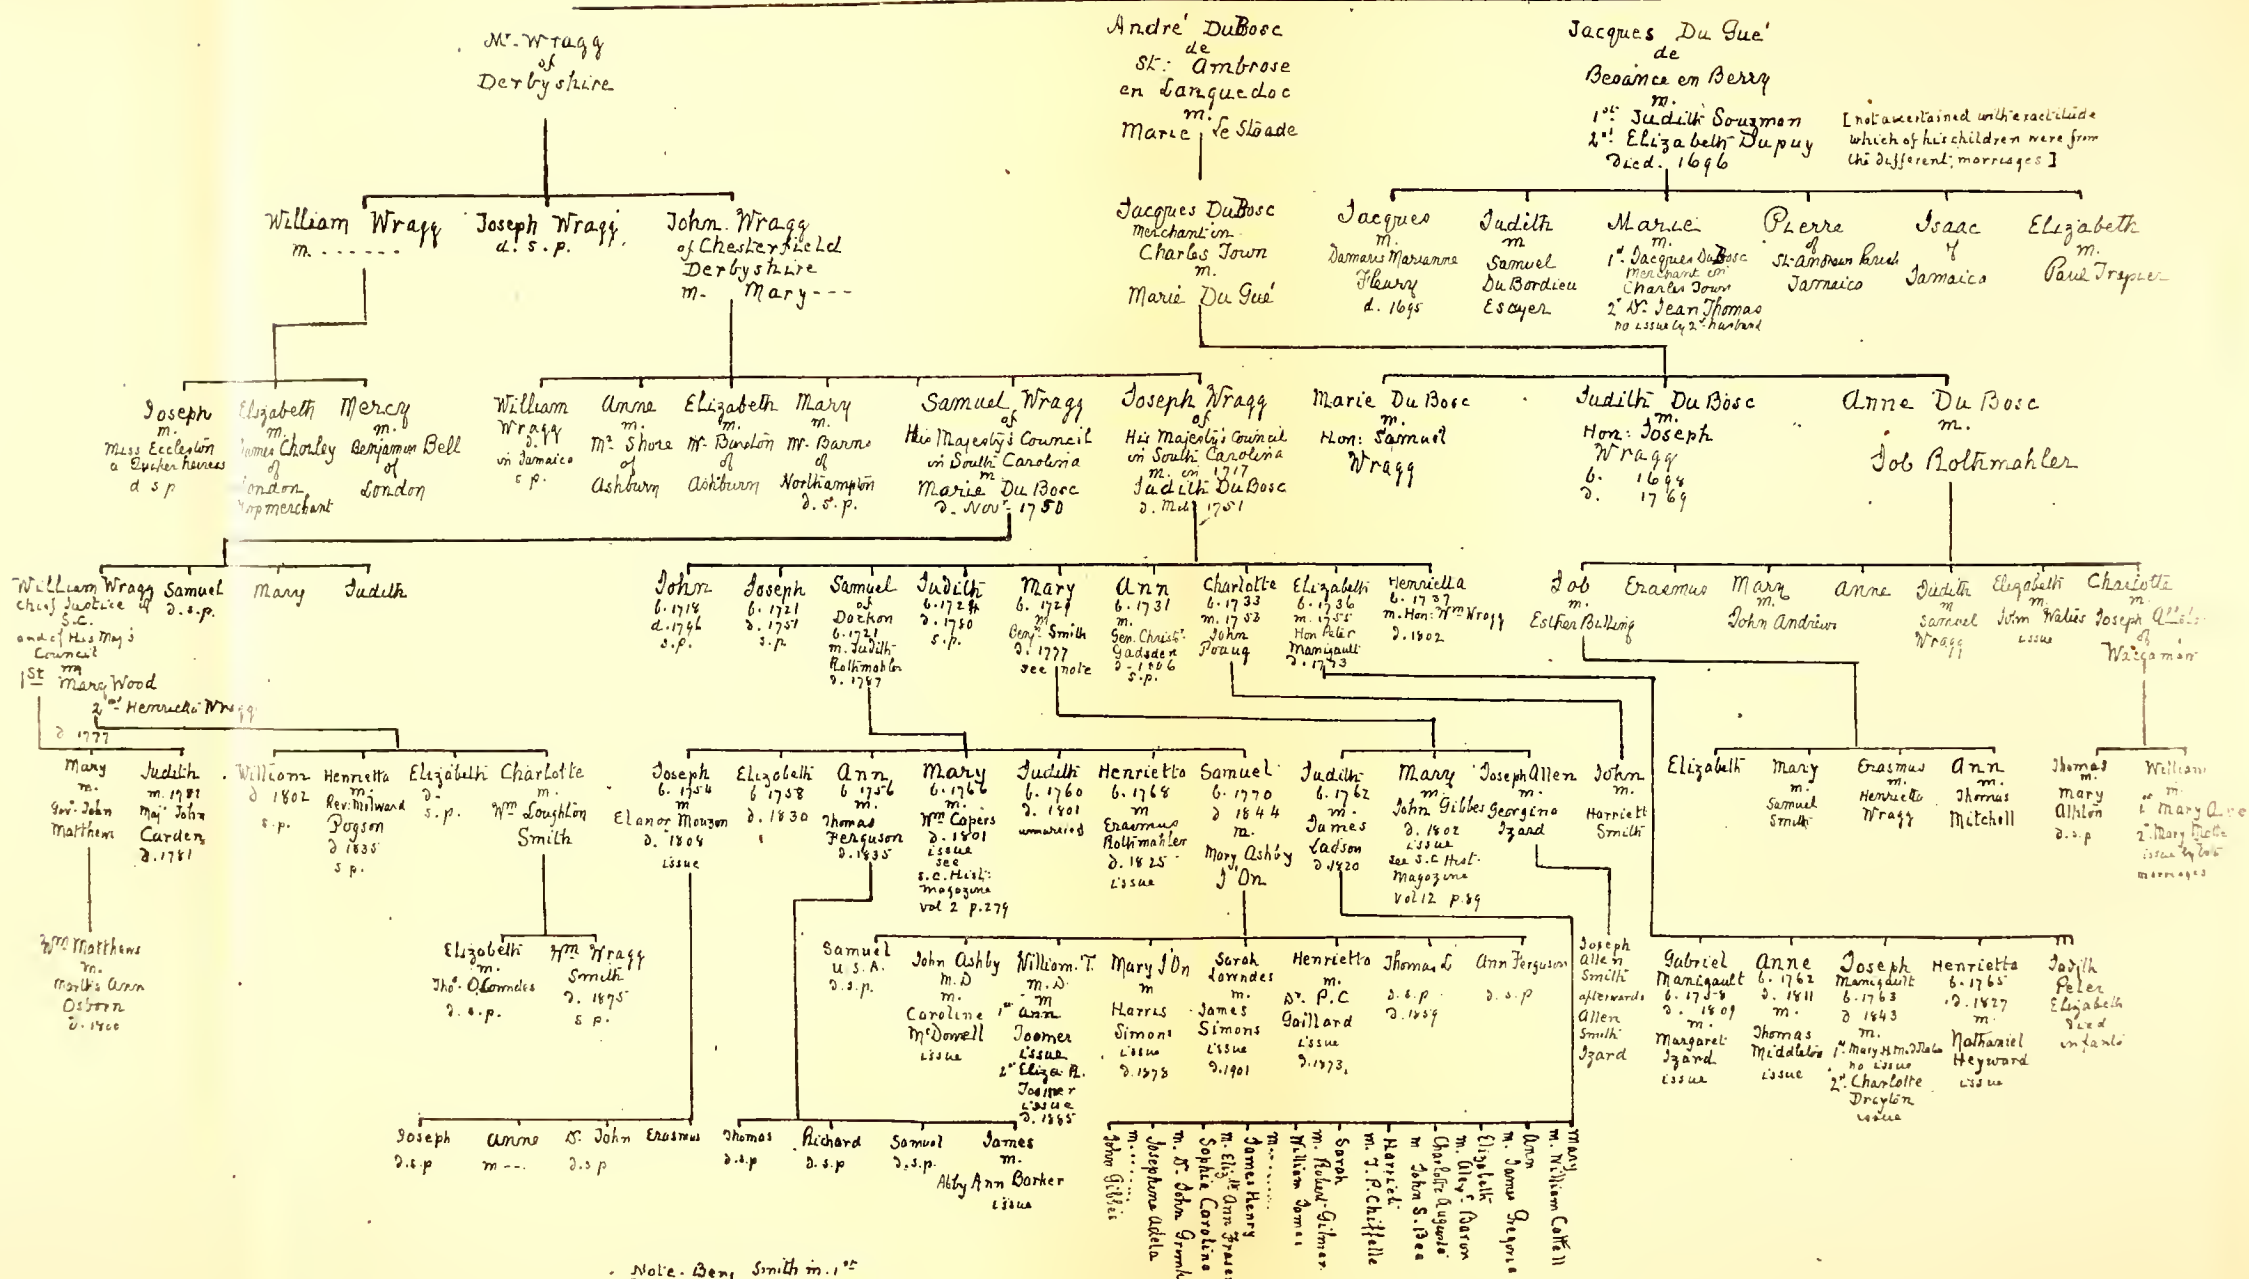 Mr. Wragg
of
Derbyshire
André DuBosc
de
St: Ambrose
en Languedoc
m.
Marie Le Sloade
Jacques Du Gué
de
Besance en Berry
m.
1st Judith Souzmon
2d Elizabeth Dupuy
Died. 1696
[not ascertained with exactitude
which of his children were from
the different marriages]
William Wragg
m. ......
Joseph Wragg
d. s. p.
John Wragg
of Chesterfield
Derbyshire
m. Mary ---
Jacques DuBosc
Merchant in
Charles Town
m.
Marie Du Gué
Jacques
m.
Damaris Marianne
Fleury
d. 1695
Judith
m
Samuel
DuBordieu
Escyer
Marie
m.
1st Jacques DuBosc
Merchant in
Charles Town
2d Dr. Jean Thomas
no issue by 2d husband
Pierre
of
St. Andrew Parish
Jamaica
Isaac
of
Jamaica
Elizabeth
m.
Paul Trapier
Joseph
m.
Miss Eccleston
a Quaker heiress
d s p
Elizabeth
m.
James Chorley
of
London
merchant
Mercy
m.
Benjamin Bell
of
London
William
Wragg
d.
in Jamaica
s p.
Anne
m.
Mr. Shore
of
Ashburn
Elizabeth
m.
Mr. Burston
of
Ashburn
Mary
m.
Mr. Barns
of
Northampton
d. s. p.
Samuel Wragg
of
His Majesty's Council
in South Carolina
m
Marie Du Bosc
d. Novr. 1750
Joseph Wragg
of
His Majesty's Council
in South Carolina
m. in 1717
Judith DuBosc
d. 1751
Marie Du Bosc
m.
Hon: Samuel
Wragg
Judith Du Bosc
m.
Hon: Joseph
Wragg
b. 1698
d. 1769
Anne Du Bosc
m.
Job Rothmahler
William Wragg
Chief Justice of
S.C.
and of His Maj's
Council
m
1st Mary Wood
2d Henrietta Wragg
d 1777
Samuel
d. s.p.
Mary
Judith
John
b. 1718
d. 1796
s.p.
Joseph
b. 1721
d. 1751
s.p
Samuel
of
Dockon
b. 1721
m. Judith
Rothmahler
d. 1787
Judith
b. 1724
d. 1780
s.p.
Mary
m
Benjn. Smith
d. 1777
see note
Ann
b. 1731
m.
Gen. Christr.
Gadsden
d. 1806
s.p.
Charlotte
b. 1733
m. 1753
John
Poaug
Elizabeth
b. 1736
m. 1755
Hon Peter
Manigault
d. 1773
Henrietta
b. 1737
m. Hon: Wm Wragg
d. 1802
Job
m.
Esther Billing
Erasmus
Mary
m.
John Andrews
Anne
Judith
m
Samuel
Wragg
Elizabeth
m.
John Waties
issue
Charlotte
m.
Joseph
of
Mary
m.
Gov. John
Matthews
Judith
m. 1781
Maj. John
Carden
d. 1781
William
d 1802
s.p.
Henrietta
m.
Rev. Milward
Pogson
d 1835
s p.
Elizabeth
d.
s.p.
Charlotte
m.
Wm. Loughton
Smith
Joseph
b. 1754
m
Elanor Mouzon
d. 1808
issue
Elizabeth
b 1758
d. 1830
Ann
b. 1756
m.
Thomas
Ferguson
d. 1835
Mary
b. 1766
m.
Wm Capers
d. 1801
issue
see
S.C. Hist:
Magazine
vol 2 p. 279
Judith
b. 1760
d. 1801
unmarried
Henrietta
b. 1768
m
Erasmus
Rothmahler
d. 1825
issue
Samuel
b. 1770
d 1844
m.
Mary Ashby
I'On
Judith
b. 1762
m.
James
Ladson
d 1820
Mary
m.
John Gibbes
d. 1802
issue
see S.C. Hist.
Magazine
vol 12 p. 89
Joseph Allen
Georgina
Izard
John
m.
Harriett
Smith
Elizabeth
Mary
m.
Samuel
Smith
Erasmus
m.
Henrietta
Wragg
Ann
m.
Thomas
Mitchell
Thomas
m.
Mary
Allston
d. s. p
William
m.
1st Mary
2d Mary Motte
issue by both
marriages
Wm Matthews
m.
Ann
Osborn
d. 1800
Elizabeth
m.
Thos. O. Lowndes
d. s. p.
Wm. Wragg
Smith
d. 1875
s p.
Samuel
U.S.A.
d. s. p.
John Ashby
M.D
m.
Caroline
McDowell
issue
William. T.
M.D.
m
1st Ann
Toomer
issue
2d Eliza R.
Toomer
issue
d. 1885
Mary I'On
m
Harris
Simons
issue
d. 1878
Sarah
Lowndes
m.
James
Simons
issue
d. 1901
Henrietta
m.
Dr. P. C
Gaillard
issue
d. 1873.
Thomas L
d. s. p.
d. 1859
Ann Ferguson
d. s. p
Joseph
Allen
Smith
afterwards
Allen
Smith
Izard
Gabriel
Manigault
b. 1758
d. 1809
m.
Margaret
Izard
issue
Anne
b. 1762
d. 1811
m.
Thomas
Middleton
issue
Joseph
Manigault
b. 1763
d 1843
m.
1st Mary
no issue
2d. Charlotte
Drayton
issue
Henrietta
b. 1765
d. 1827
m.
Nathaniel
Heyward
issue
Judith
Peter
Elizabeth
died
infants
Joseph
d. s. p
Anne
m ---.
Dr. John
d. s p
Erasmus
Thomas
d. s. p
Richard
d. s. p
Samuel
d. s. p.
James
m.
Abby Ann Barker
issue
John Gibbes
m. .......
Josephine Adela
m. Dr. John
Sophia Caroline
m. Elizth Ann Fraser
James Henry
m. .......
William James
m. Robert Gilmer
Sarah
m. J. P. Chiffelle
Harriett
m John S. Bee
Charlotte Augusta
m. Alexr. Baron
Elizabeth
m. James Gregorie
Ann
m. William Cottell
Mary
Note. Benj Smith m. 1st